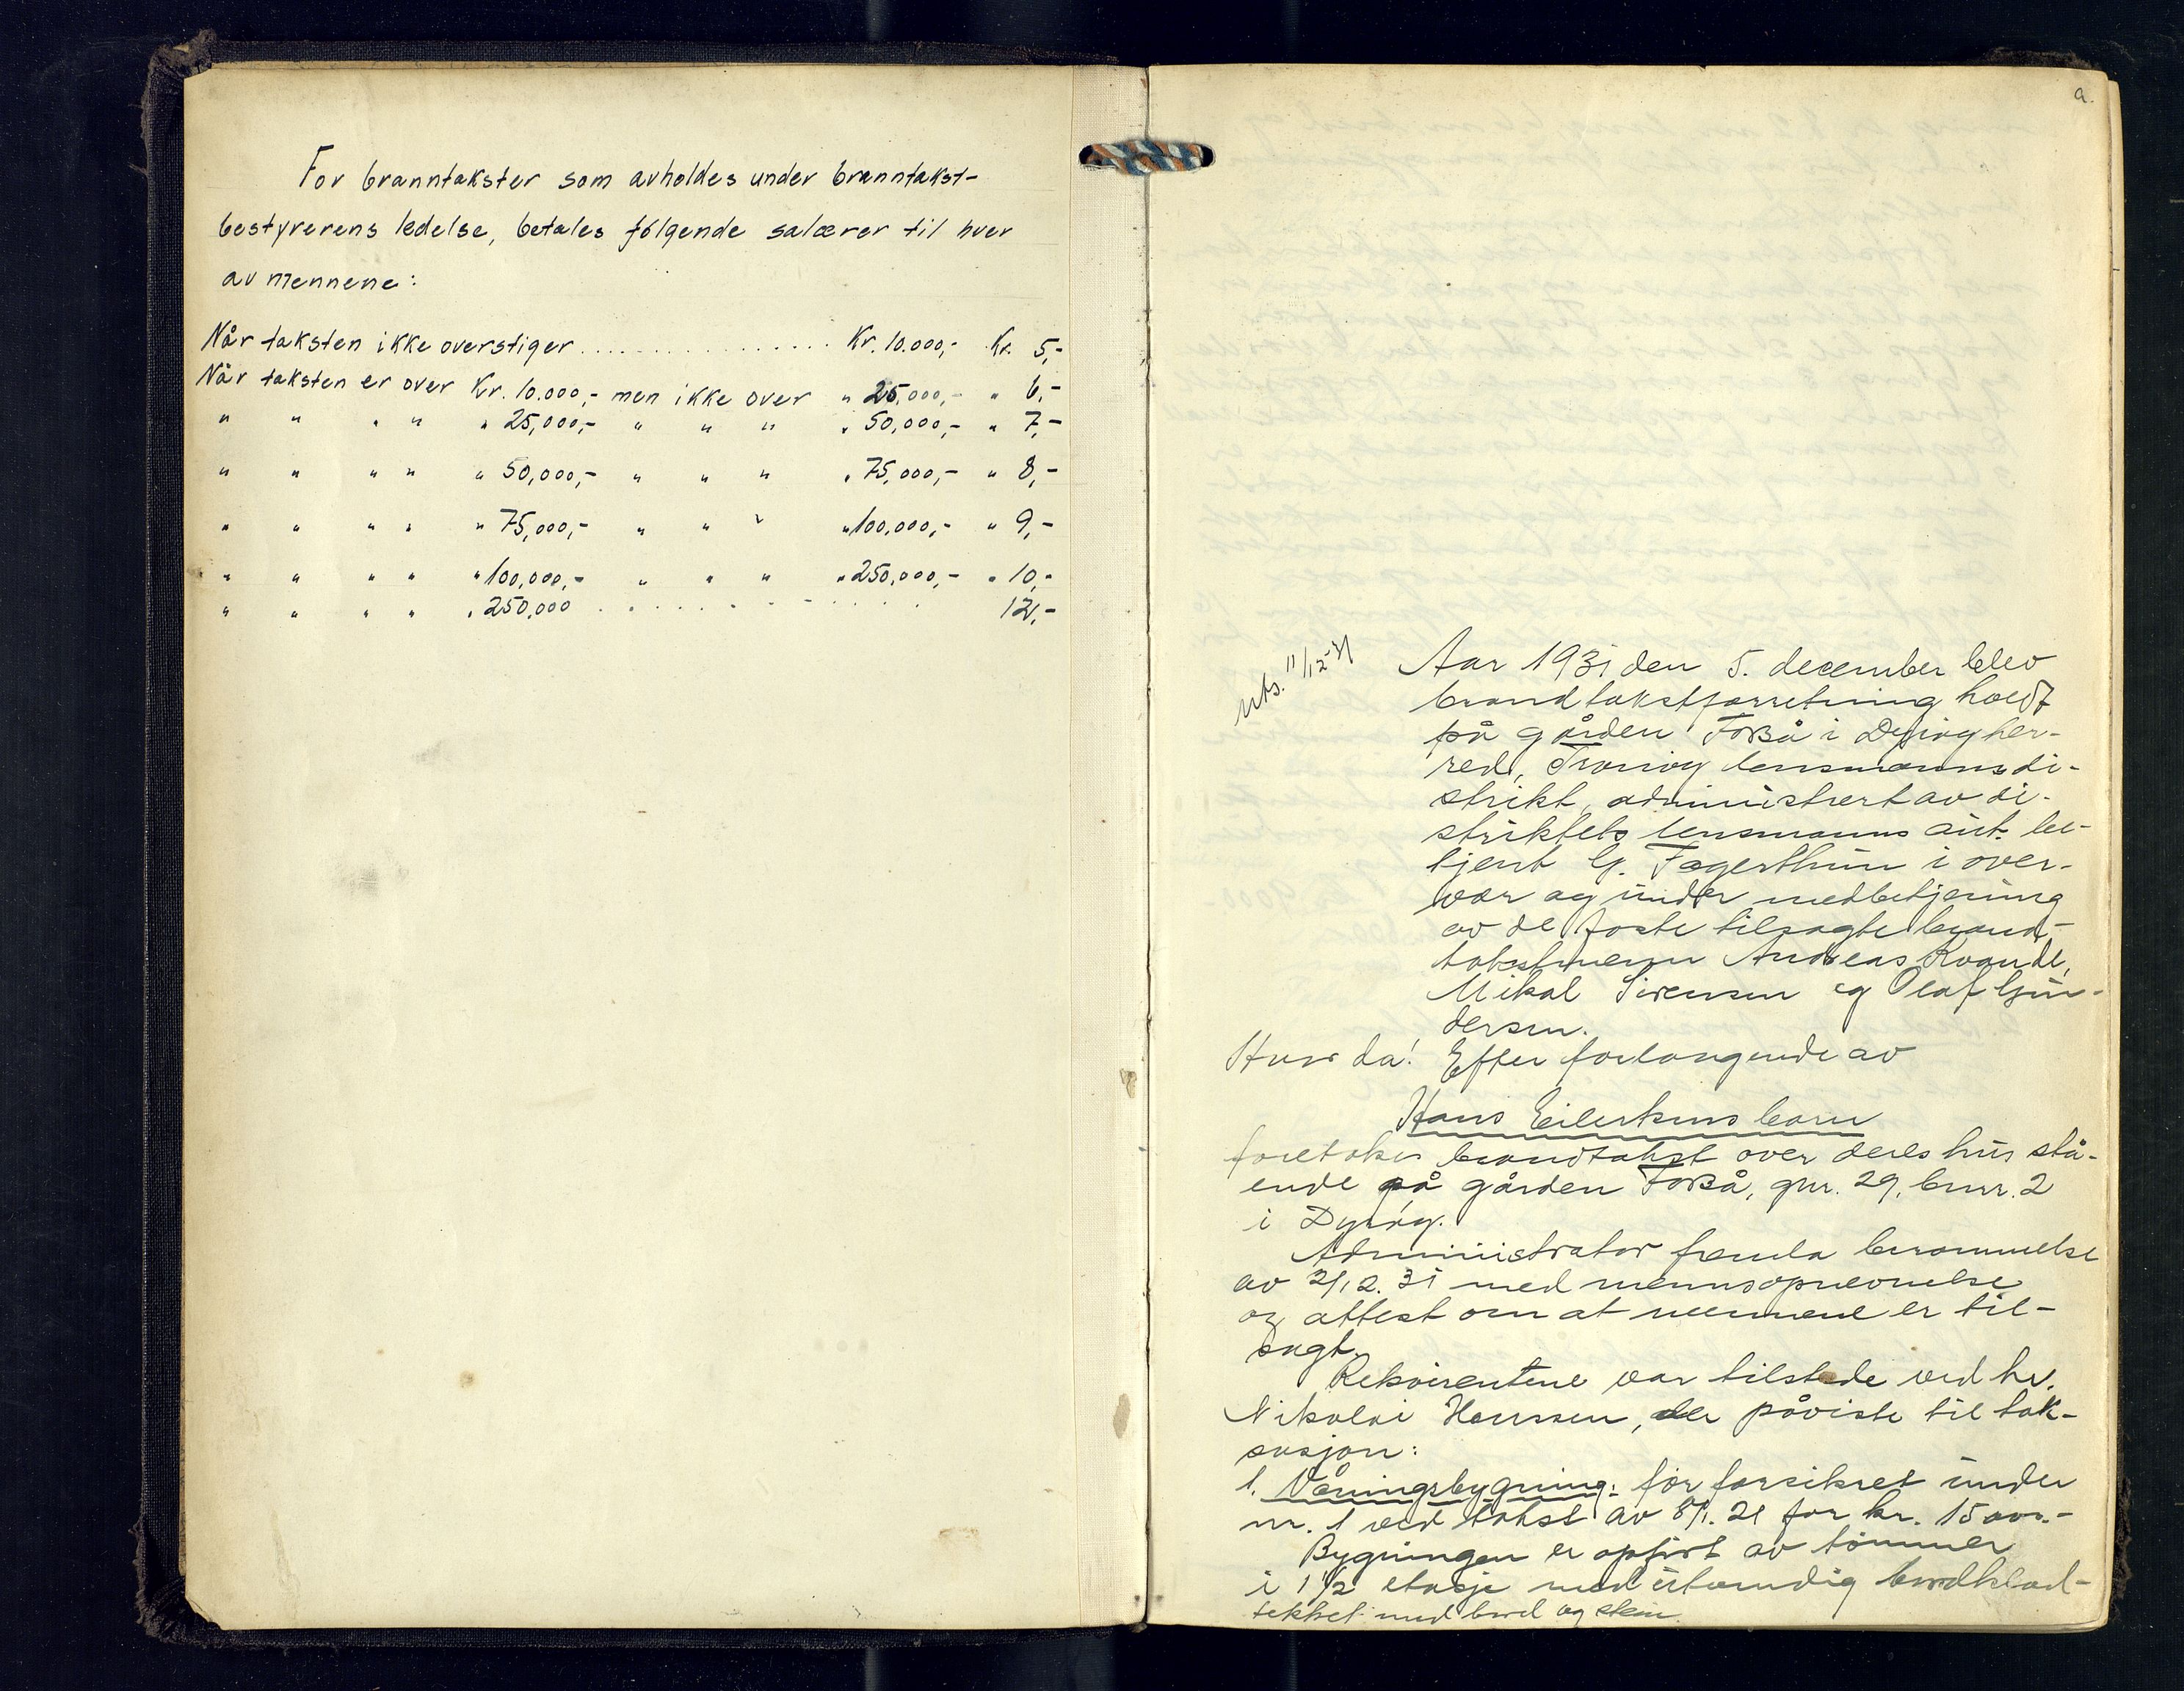 For branntakster som avholdes under branntakst-
bestyrerens ledelse, betales følgende salærer til hver
av mennene:
Når taksten ikke overstiger................ Kr. 10.000,- Kr. 5,-
Når taksten er over Kr. 10.000,- men ikke over " 25,000,- " 6,-
" " " " " 25,000,- " " " " 50,000,- " 7,-
" " " " " 50,000,- " " " " 75,000,- " 8,-
" " " " " 75,000,- " " " " 100,000,- " 9,-
" " " " " 100,000,- " " " " 250,000,- " 10,-
" " " " " 250,000 .......... 12,-
a.
uts. 11/12-31
Aar 1931 den 5. december blev
brandtakstforretning holdt
på gården Forså i Dyrøy her-
red, Tranøy lensmannsdi-
strikt, administrert av di-
striktets lensmanns aut. be-
tjent G. Fagerthun i over-
vær og under medbetjening
av de faste tilsagte brand-
takstmenn Andreas Kvande,
Mikal Sørensen og Olaf Gun-
dersen.
Hvor da! Efter forlangende av
Hans Eilertsens barn
foretokes brandtakst over deres hus stå-
ende på gården Forså, gnr. 29, bnr. 2
i Dyrøy.
Administrator fremla berammelse
av 2/12.31 med mennsopnevnelse
og attest om at mennene er til-
sagt.
Rekvirentene var tilstede ved hr.
Nikolai Hanssen, der påviste til tak-
sasjon:
1. Våningsbygning: før forsikret under
nr. 1 ved takst av 8/1. 21 for kr. 15000.-
Bygningen er opført av tømmer
i 1 1/2 etasje med utvendig bordklæd-
tekket med bord og sten.